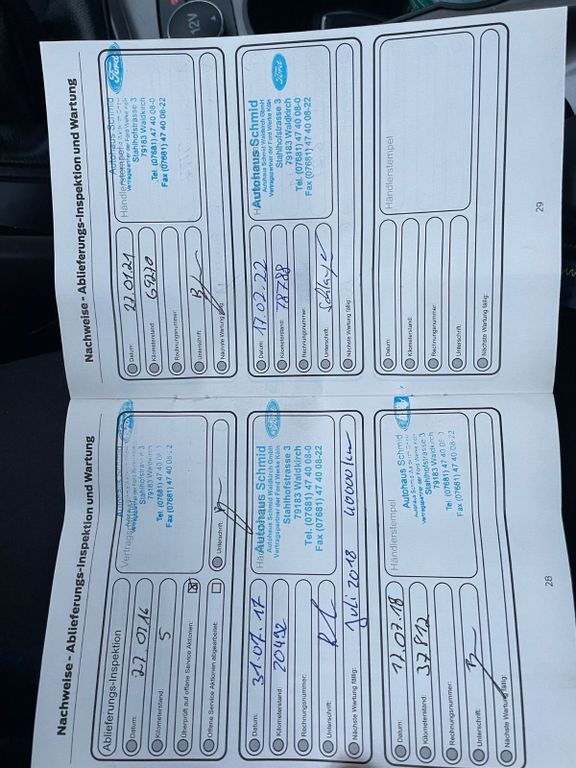 Nachweise - Ablieferungs-Inspektion und Wartung
Ablieferungs-Inspektion
Datum: 27 07 16
Kilometerstand: 5
Überprüft auf offene Service Aktionen:
Offene Service Aktionen abgearbeitet:
Unterschrift:
Ford
Autohaus Schmid
Stahlhofstrasse 3
79183 Waldkirch
Tel. (07681) 47 40 08-0
Fax (07681) 47 40 08-22
Datum: 31.07.17
Kilometerstand: 20492
Rechnungsnummer:
Unterschrift:
Nächste Wartung fällig: Juli 2018 40000 km
Ford
Autohaus Schmid
Autohaus Schmid Waldkirch GmbH
Vertragspartner der Ford Werke Köln
Stahlhofstrasse 3
79183 Waldkirch
Tel. (07681) 47 40 08-0
Fax (07681) 47 40 08-22
Datum: 12.07.18
Kilometerstand: 37812
Rechnungsnummer:
Unterschrift:
Nächste Wartung fällig:
Händlerstempel
Autohaus Schmid
Stahlhofstrasse 3
79183 Waldkirch
Tel. (07681) 47 40 08-0
Fax (07681) 47 40 08-22
28
Nachweise - Ablieferungs-Inspektion und Wartung
Datum: 22.01.21
Kilometerstand: 69270
Rechnungsnummer:
Unterschrift:
Nächste Wartung fällig:
Ford
Autohaus Schmid
Händlerstempel
Vertragspartner der Ford Werke Köln
Stahlhofstrasse 3
79183 Waldkirch
Tel. (07681) 47 40 08-0
Fax (07681) 47 40 08-22
Datum: 17.02.22
Kilometerstand: 78788
Rechnungsnummer:
Unterschrift:
Nächste Wartung fällig:
Ford
Autohaus Schmid
Autohaus Schmid Waldkirch GmbH
Vertragspartner der Ford Werke Köln
Stahlhofstrasse 3
79183 Waldkirch
Tel. (07681) 47 40 08-0
Fax (07681) 47 40 08-22
Datum:
Kilometerstand:
Rechnungsnummer:
Unterschrift:
Nächste Wartung fällig:
Händlerstempel
29
12V